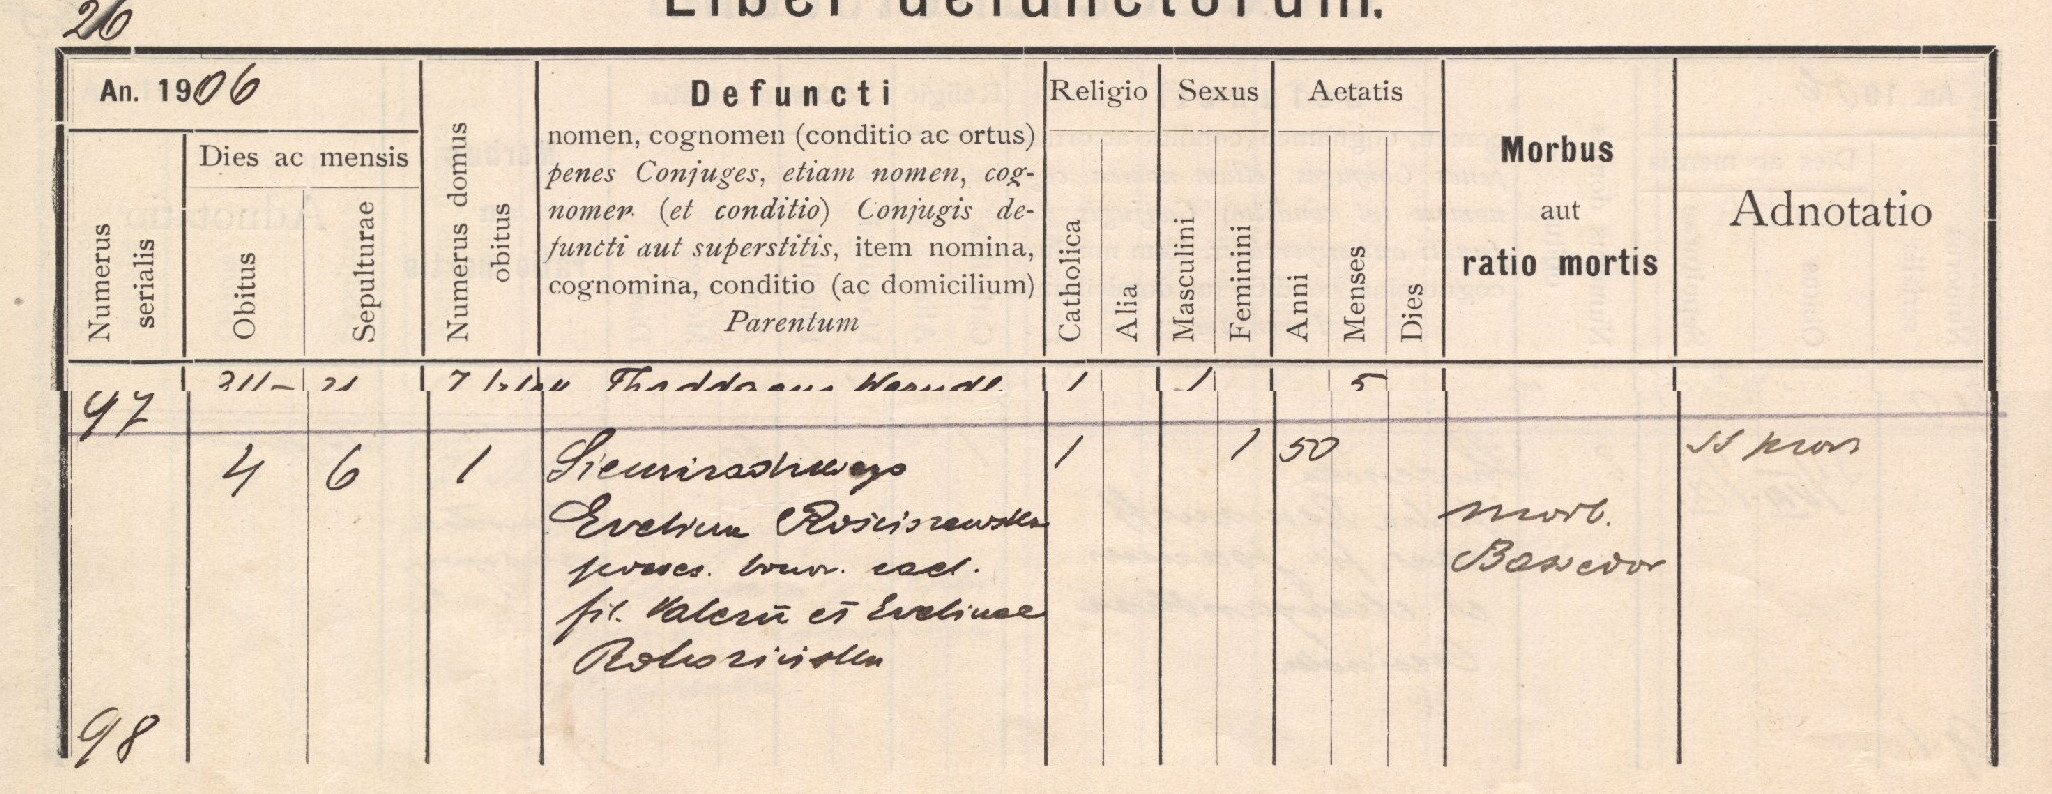 26
Liber defunctorum.
An. 1906
Dies ac mensis
Numerus serialis
Obitus
Sepulturae
Numerus domus obitus
Defuncti
nomen, cognomen (conditio ac ortus)
penes Conjuges, etiam nomen, cog-
nomen (et conditio) Conjugis de-
functi aut superstitis, item nomina,
cognomina, conditio (ac domicilium)
Parentum
Religio
Catholica
Alia
Sexus
Masculini
Feminini
Aetatis
Anni
Menses
Dies
Morbus
aut
ratio mortis
Adnotatio
Thaddaeus 1 1 5
97
4 6 1 1 1 50 SS prov
Evelina Rościszewska
posses. bonor. eod.
fil. Valerii et Evelinae
morb.
Basedov
98